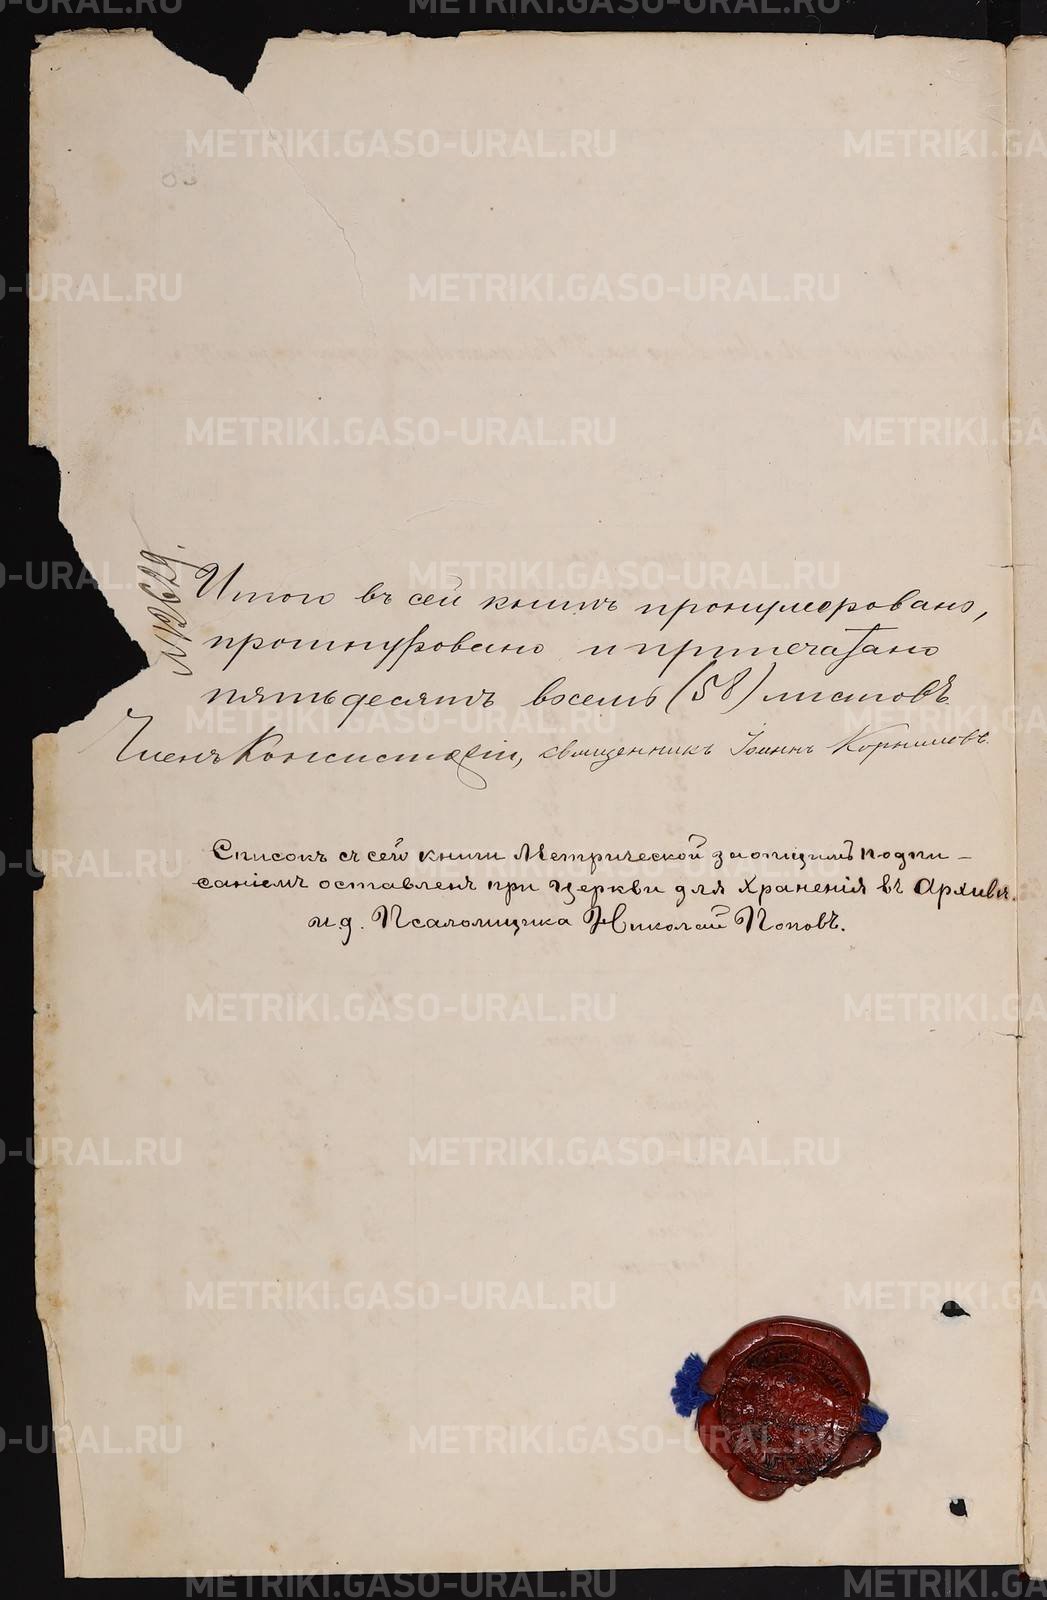 № 2629.
Итого въ сей книгѣ пронумеровано,
прошнуровано и припечатано
пятьдесятъ восемь (58) листовъ.
Членъ Консисторіи, священникъ Іоаннъ Корниловъ.
Списокъ съ сей книги Метрической за общимъ подпи-
саніемъ оставленъ при церкви для храненія въ Архивѣ.
и.д. Псаломщика Николай Поповъ.
METRIKI.GASO-URAL.RU